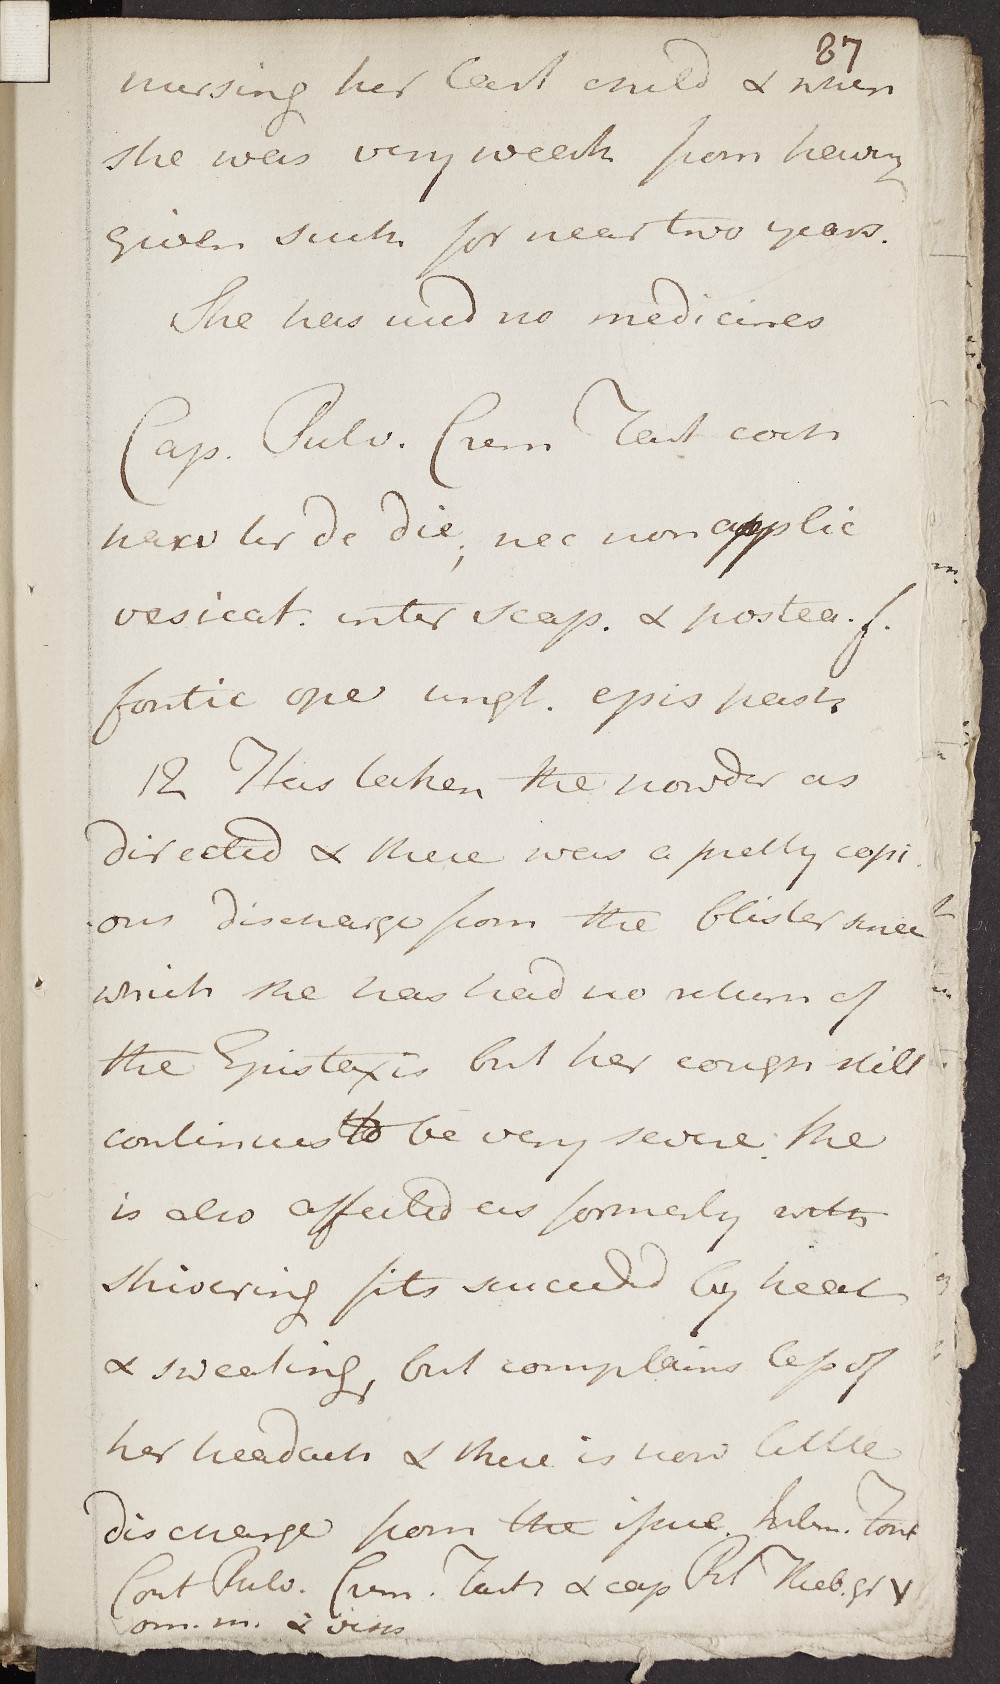 87
nursing her last child & when
she was very weak from having
given suck for near two years.
She has used no medicines
Cap. Pulv. Crem Tart coch
ter de die; nec non applic
vesicat. inter scap. & postea. f.
fontic ope ungt. epispast
12 Has taken the powder as
directed & there was a pretty copi
ous discharge from the blister since
which she has had no return of
the Epistaxis but her cough still
continues to be very severe. She
is also affected as formerly with
shivering fits succeeded by heat
& sweating, but complains less of
her headach & there is now little
discharge from the issue. Font
Cont Pulv. Crem. Tart & cap Pil Theb. gr V
om. m. &